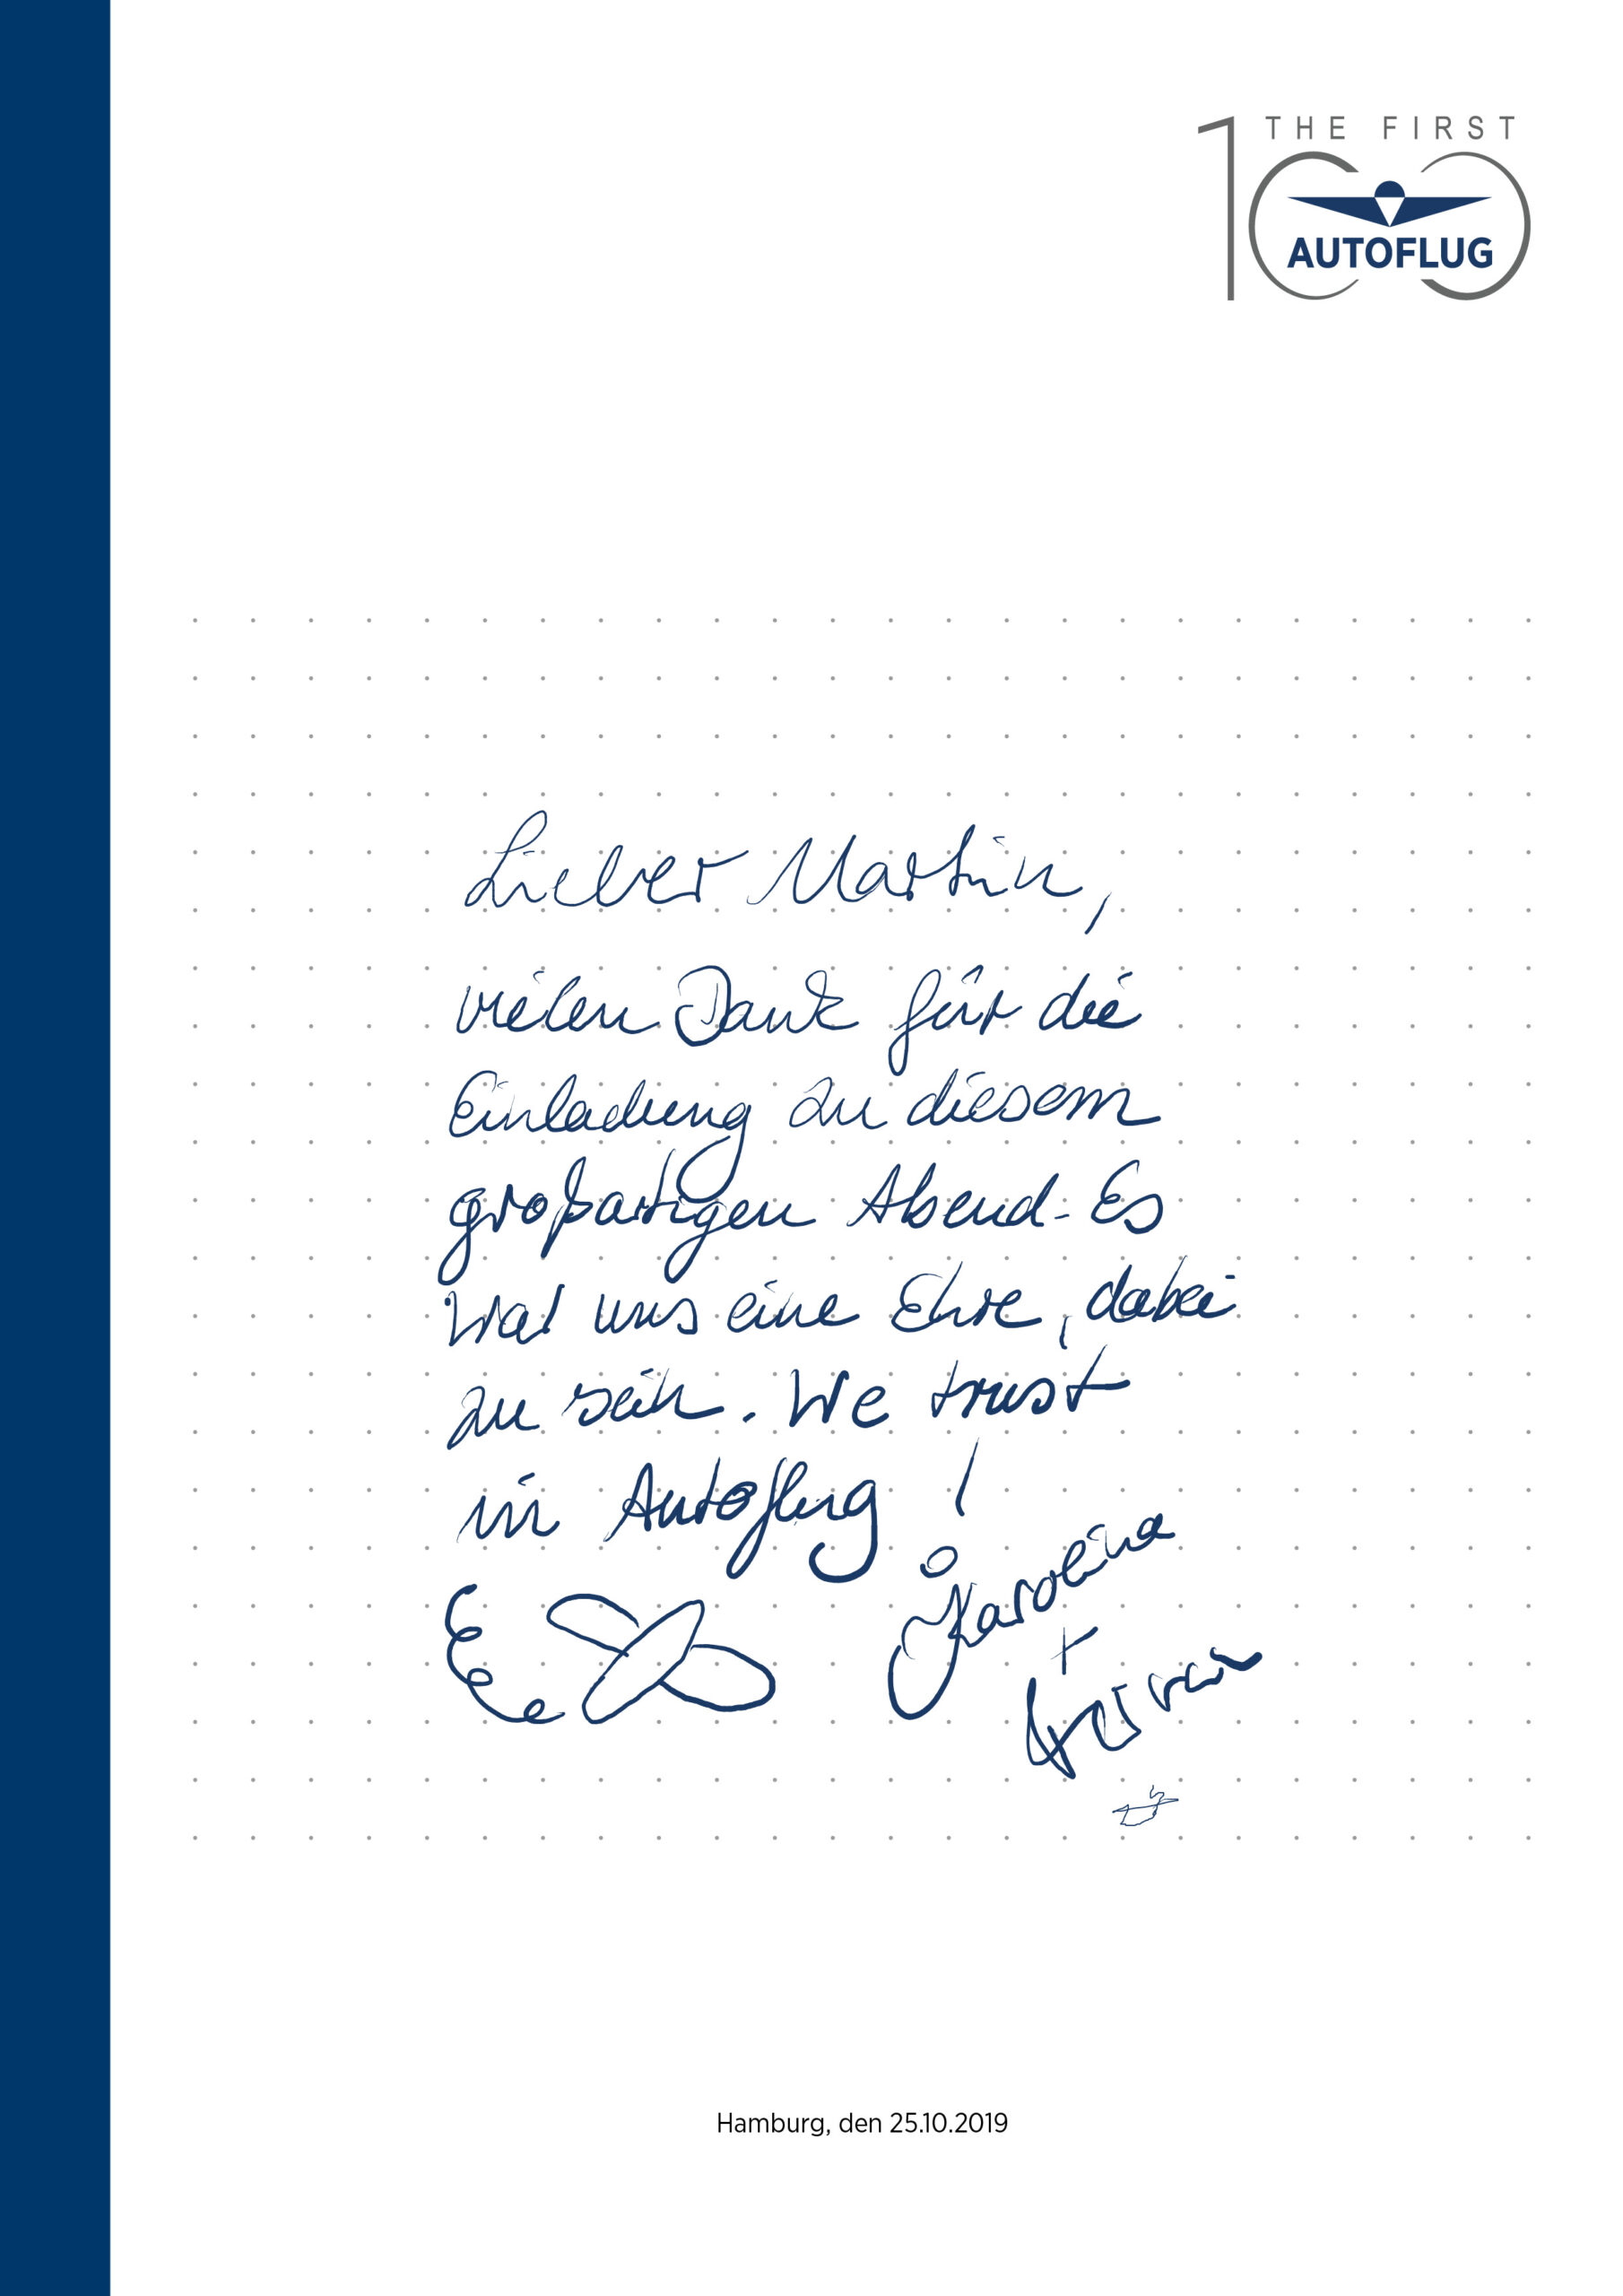 THE FIRST
100
AUTOFLUG
Lieber Martin,
vielen Dank für die
Einladung zu diesem
großartigen Abend. Es
war uns eine Ehre, dabei
zu sein. We trust
in Autoflug!
Karolina
+
Hamburg, den 25.10.2019